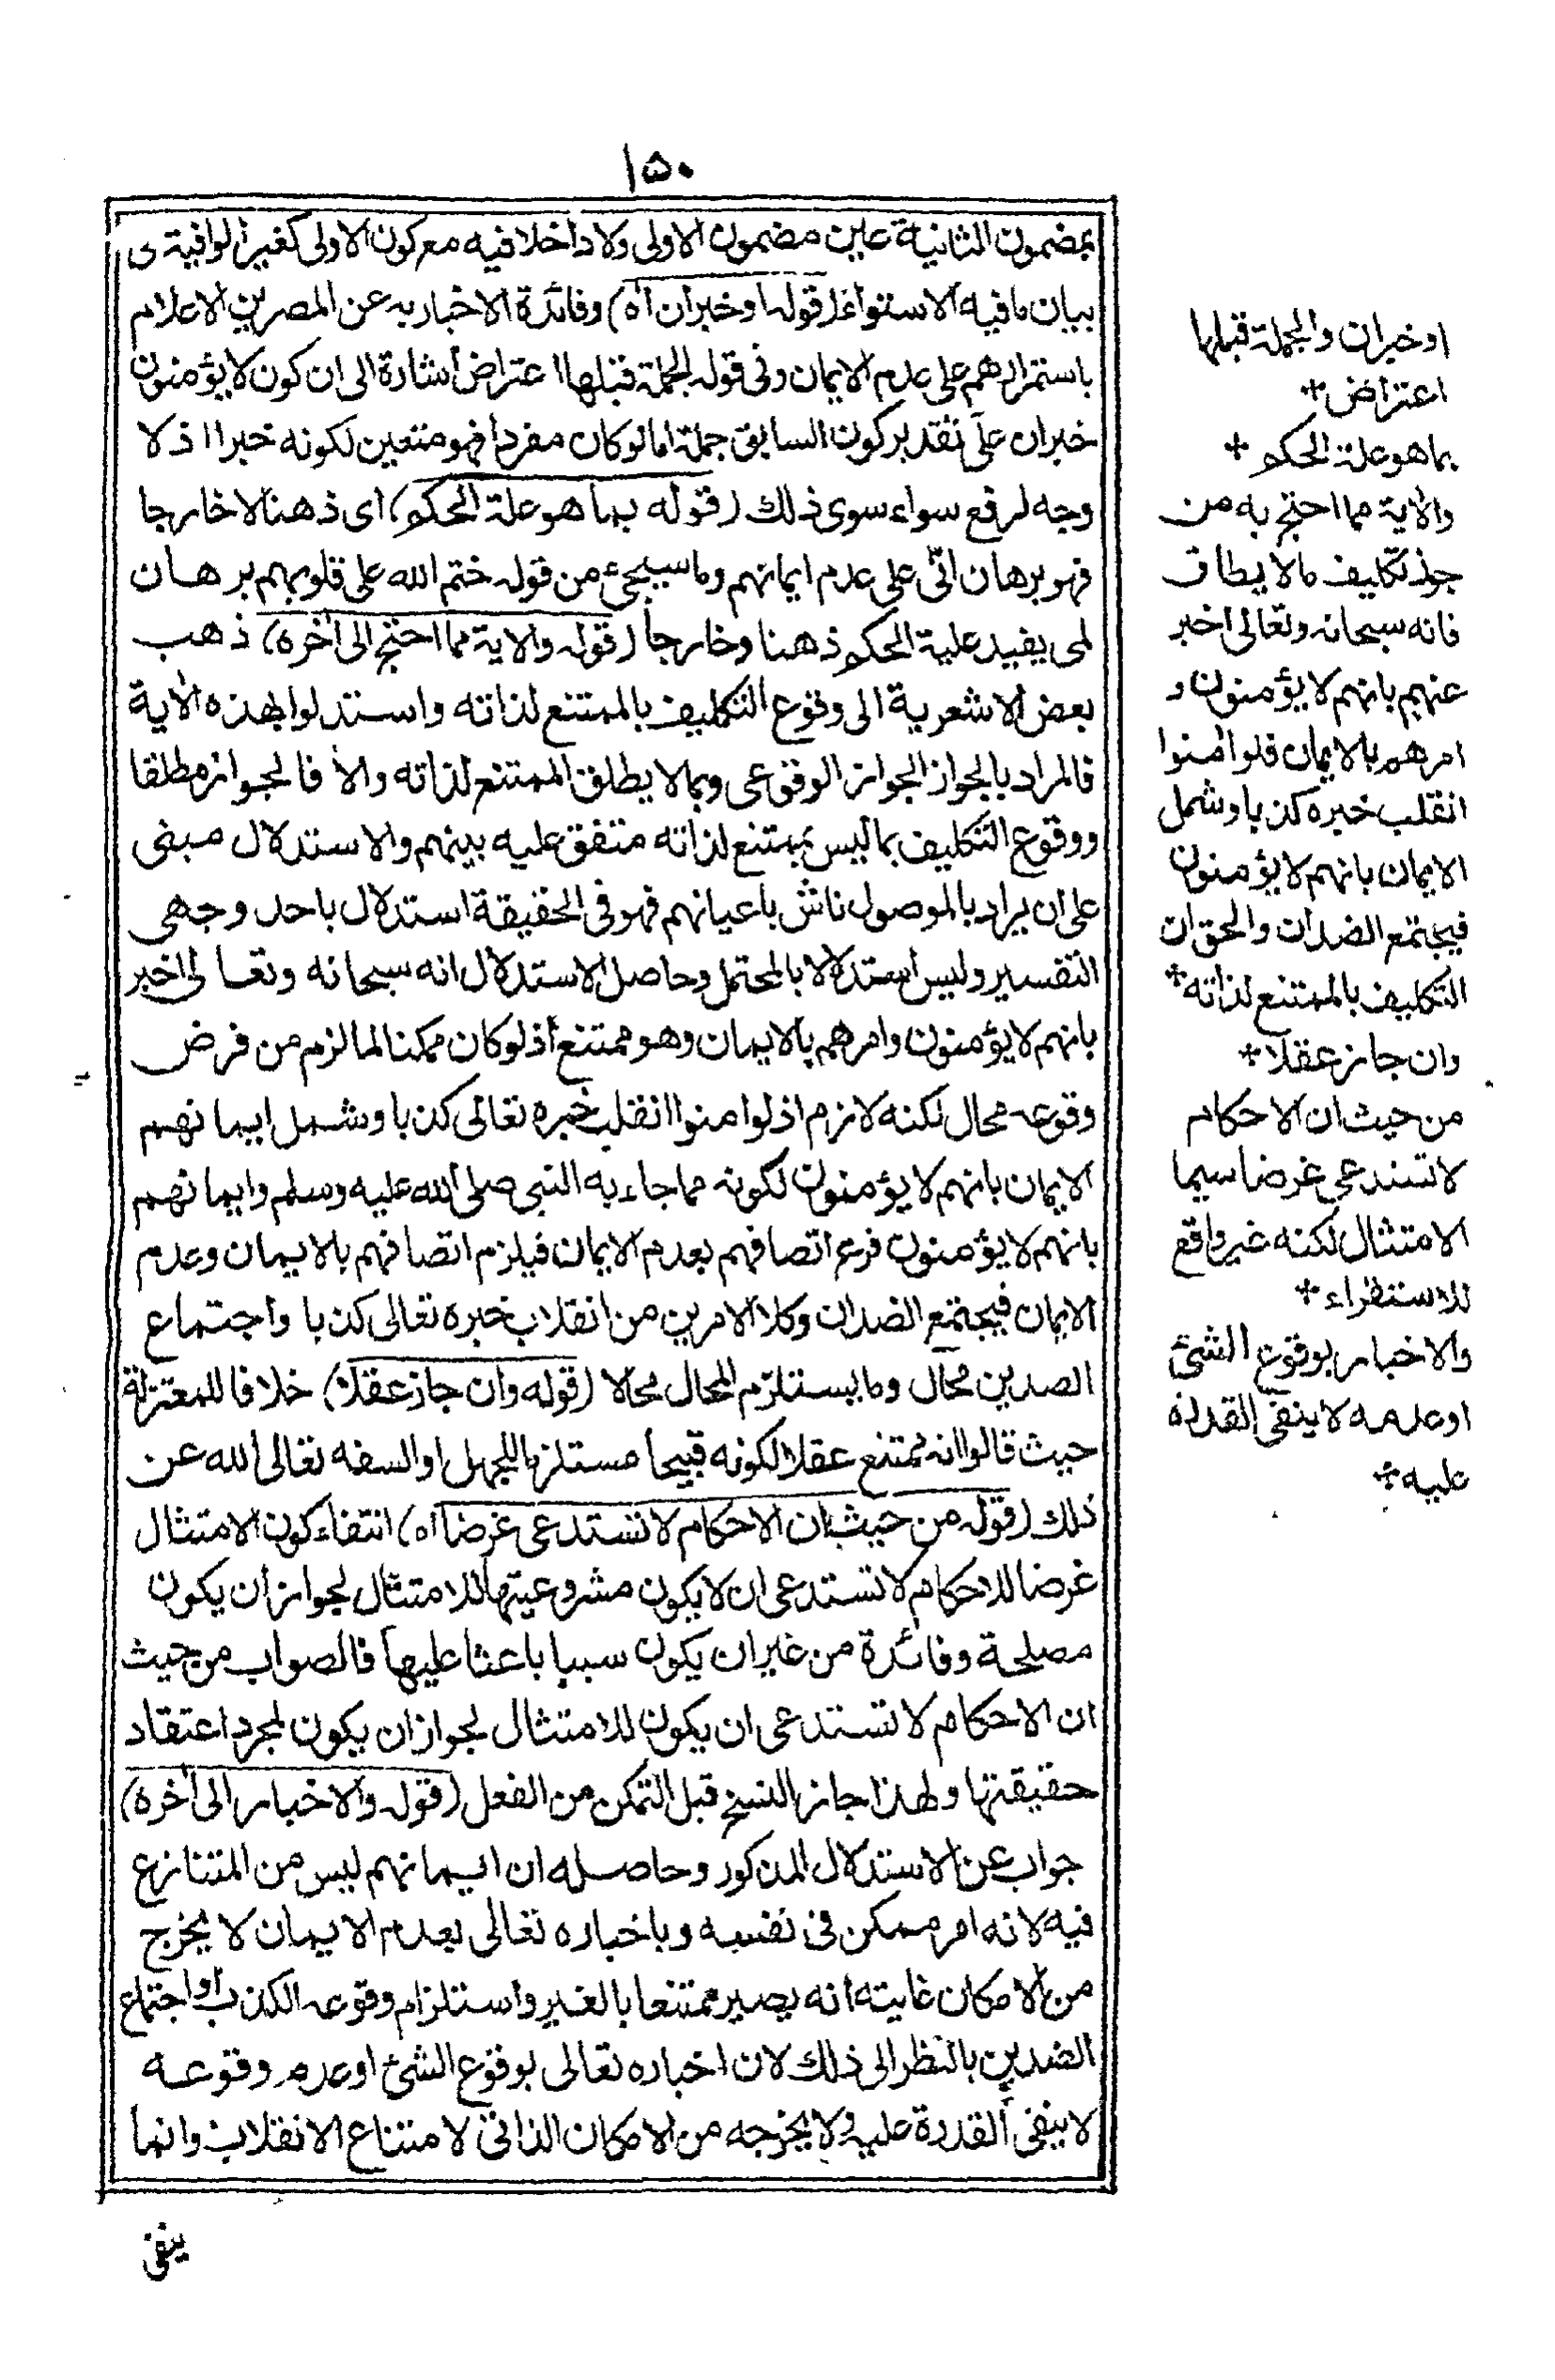 ١٥٠
بمضمون الثانية عين مضمون الاولى ولا داخلا فيه مع كون الاولى كغير الوافية ى
بيان ما فيه الاستواء (قوله او خبران اه) وفائدة الاخبار به عن المصرين الاعلام
باستمرارهم على عدم الايمان وفى قوله الجملة قبلها اعتراض اشارة الى ان كون لا يؤمنون
خبران على تقدير كون السابق جملة اما لو كان مفردا فهو متعين لكونه خبرا اذ لا
وجه لرفع سواء سوى ذلك (قوله بما هو علة الحكم) اى ذهنا لا خارجا
فهو برهان انّى على عدم ايمانهم وما سيجئ من قوله ختم الله على قلوبهم برهان
لمى يفيد علية الحكم ذهنا وخارجا (قوله والاية مما احتج الى آخره) ذهب
بعض الاشعرية الى وقوع التكليف بالممتنع لذاته واستدلوا بهذه الاية
فالمراد بالجواز الجواز الوقوعى وبما لا يطلق الممتنع لذاته والا فالجواز مطلقا
ووقوع التكليف بما ليس بممتنع لذاته متفق عليه بينهم والاستدلال مبنى
على ان يراد بالموصول ناش باعيانهم فهو فى الحقيقة استدلال باحد وجهى
التفسير وليس استدلالا بالمحتمل وحاصل الاستدلال انه سبحانه وتعالى اخبر
بانهم لا يؤمنون وامرهم بالايمان وهو ممتنع اذ لو كان ممكنا لما لزم من فرض
وقوعه محال لكنه لازم اذ لو امنوا انقلب خبره تعالى كذبا وشمل ايمانهم
الايمان بانهم لا يؤمنون لكونه مما جاء به النبى صلى الله عليه وسلم وايمانهم
بانهم لا يؤمنون فرع اتصافهم بعدم الايمان فيلزم اتصافهم بالايمان وعدم
الايمان فيجتمع الضدان وكلا الامرين من انقلاب خبره تعالى كذبا واجتماع
الضدين محال وما يستلزم المحال محالا (قوله وان جاز عقلا) خلافا للمعتزلة
حيث قالوا انه ممتنع عقلا لكونه قبيحا مستلزما للجهل او السفه تعالى الله عن
ذلك (قوله من حيث ان الاحكام لا تستدعى غرضا اه) انتفاء كون الامتثال
غرضا للاحكام لا تستدعى ان لا يكون مشروعيتها للامتثال لجواز ان يكون
مصلحة وفائدة من غير ان يكون سببا باعثا عليها فالصواب من حيث
ان الاحكام لا تستدعى ان يكون للامتثال لجواز ان يكون لمجرد اعتقاد
حقيقتها ولهذا جاز النسخ قبل التمكن من الفعل (قوله والاخبار الى آخره)
جواب عن الاستدلال المذكور وحاصله ان ايمانهم ليس من المتنازع
فيه لانه امر ممكن فى نفسه وباخباره تعالى بعدم الايمان لا يخرج
من الامكان غايته انه يصير ممتنعا بالغير واستلزام وقوعه الكذب او اجتماع
الضدين بالنظر الى ذلك لان اخباره تعالى بوقوع الشئ او عدم وقوعه
لا ينفى القدرة عليه ولا يخرجه من الامكان الذاتى لامتناع الانقلاب وانما
ينفى
او خبران والجملة قبلها
اعتراض *
بما هو علة الحكم *
والاية مما احتج به من
جوز تكليف ما لا يطاق
فانه سبحانه وتعالى اخبر
عنهم بانهم لا يؤمنون و
امرهم بالايمان فلو امنوا
انقلب خبره كذبا وشمل
الايمان بانهم لا يؤمنون
فيجتمع الضدان والحق ان
التكليف بالممتنع لذاته *
وان جاز عقلا *
من حيث ان الاحكام
لا تستدعى غرضا سيما
الامتثال لكنه غير واقع
للاستقراء *
والاخبار بوقوع الشئ
او عدمه لا ينفى القدرة
عليه *